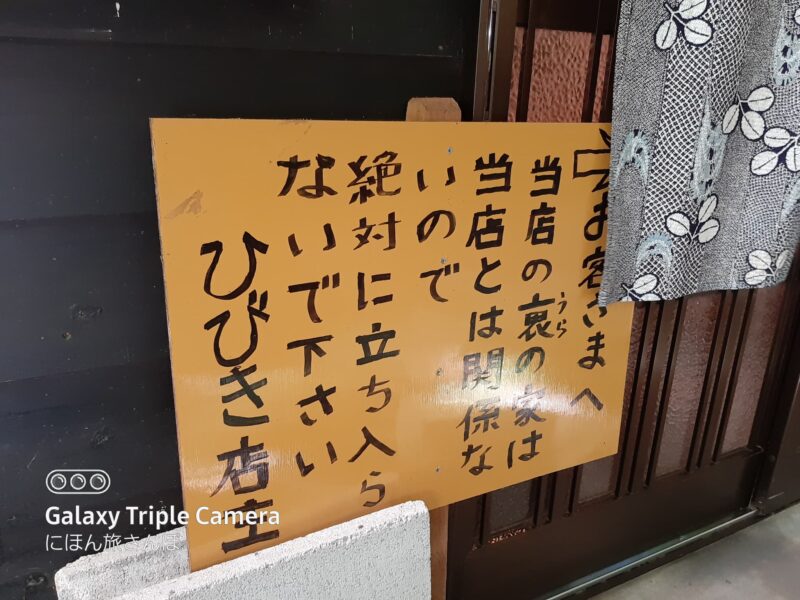 お客さまへ
当店の裏の家は
うら
当店とは関係な
いので
絶対に立ち入ら
ないで下さい
ひびき店主
Galaxy Triple Camera
にほん旅さんぽ